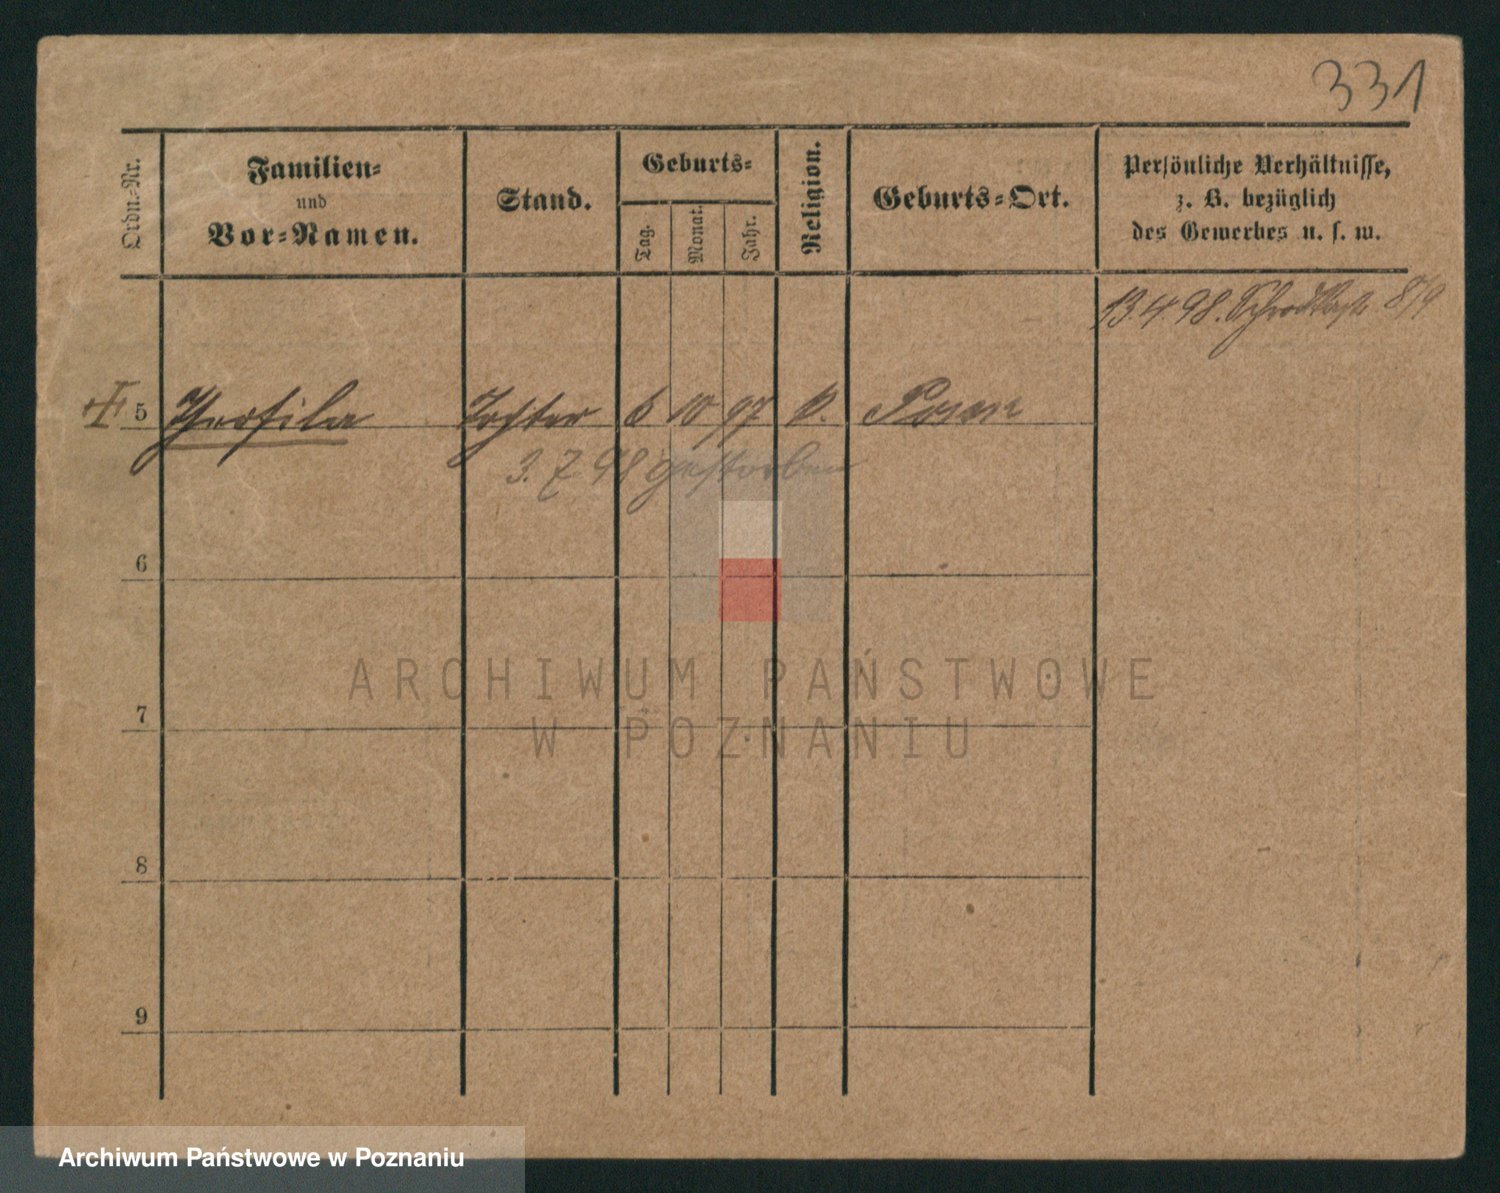 331
Ordn.-Nr.
Familien-
und
Vor-Namen.
Stand.
Geburts-
Tag.
Monat.
Jahr.
Religion.
Geburts-Ort.
Persönliche Verhältnisse,
z. B. bezüglich
des Gewerbes u. s. w.
13.4.98. 8/9
5 Theofila Tochter 6 10 97 k. Posen
3. 7 98 gestorben
6
7
8
9
ARCHIWUM PAŃSTWOWE
W POZNANIU
Archiwum Państwowe w Poznaniu